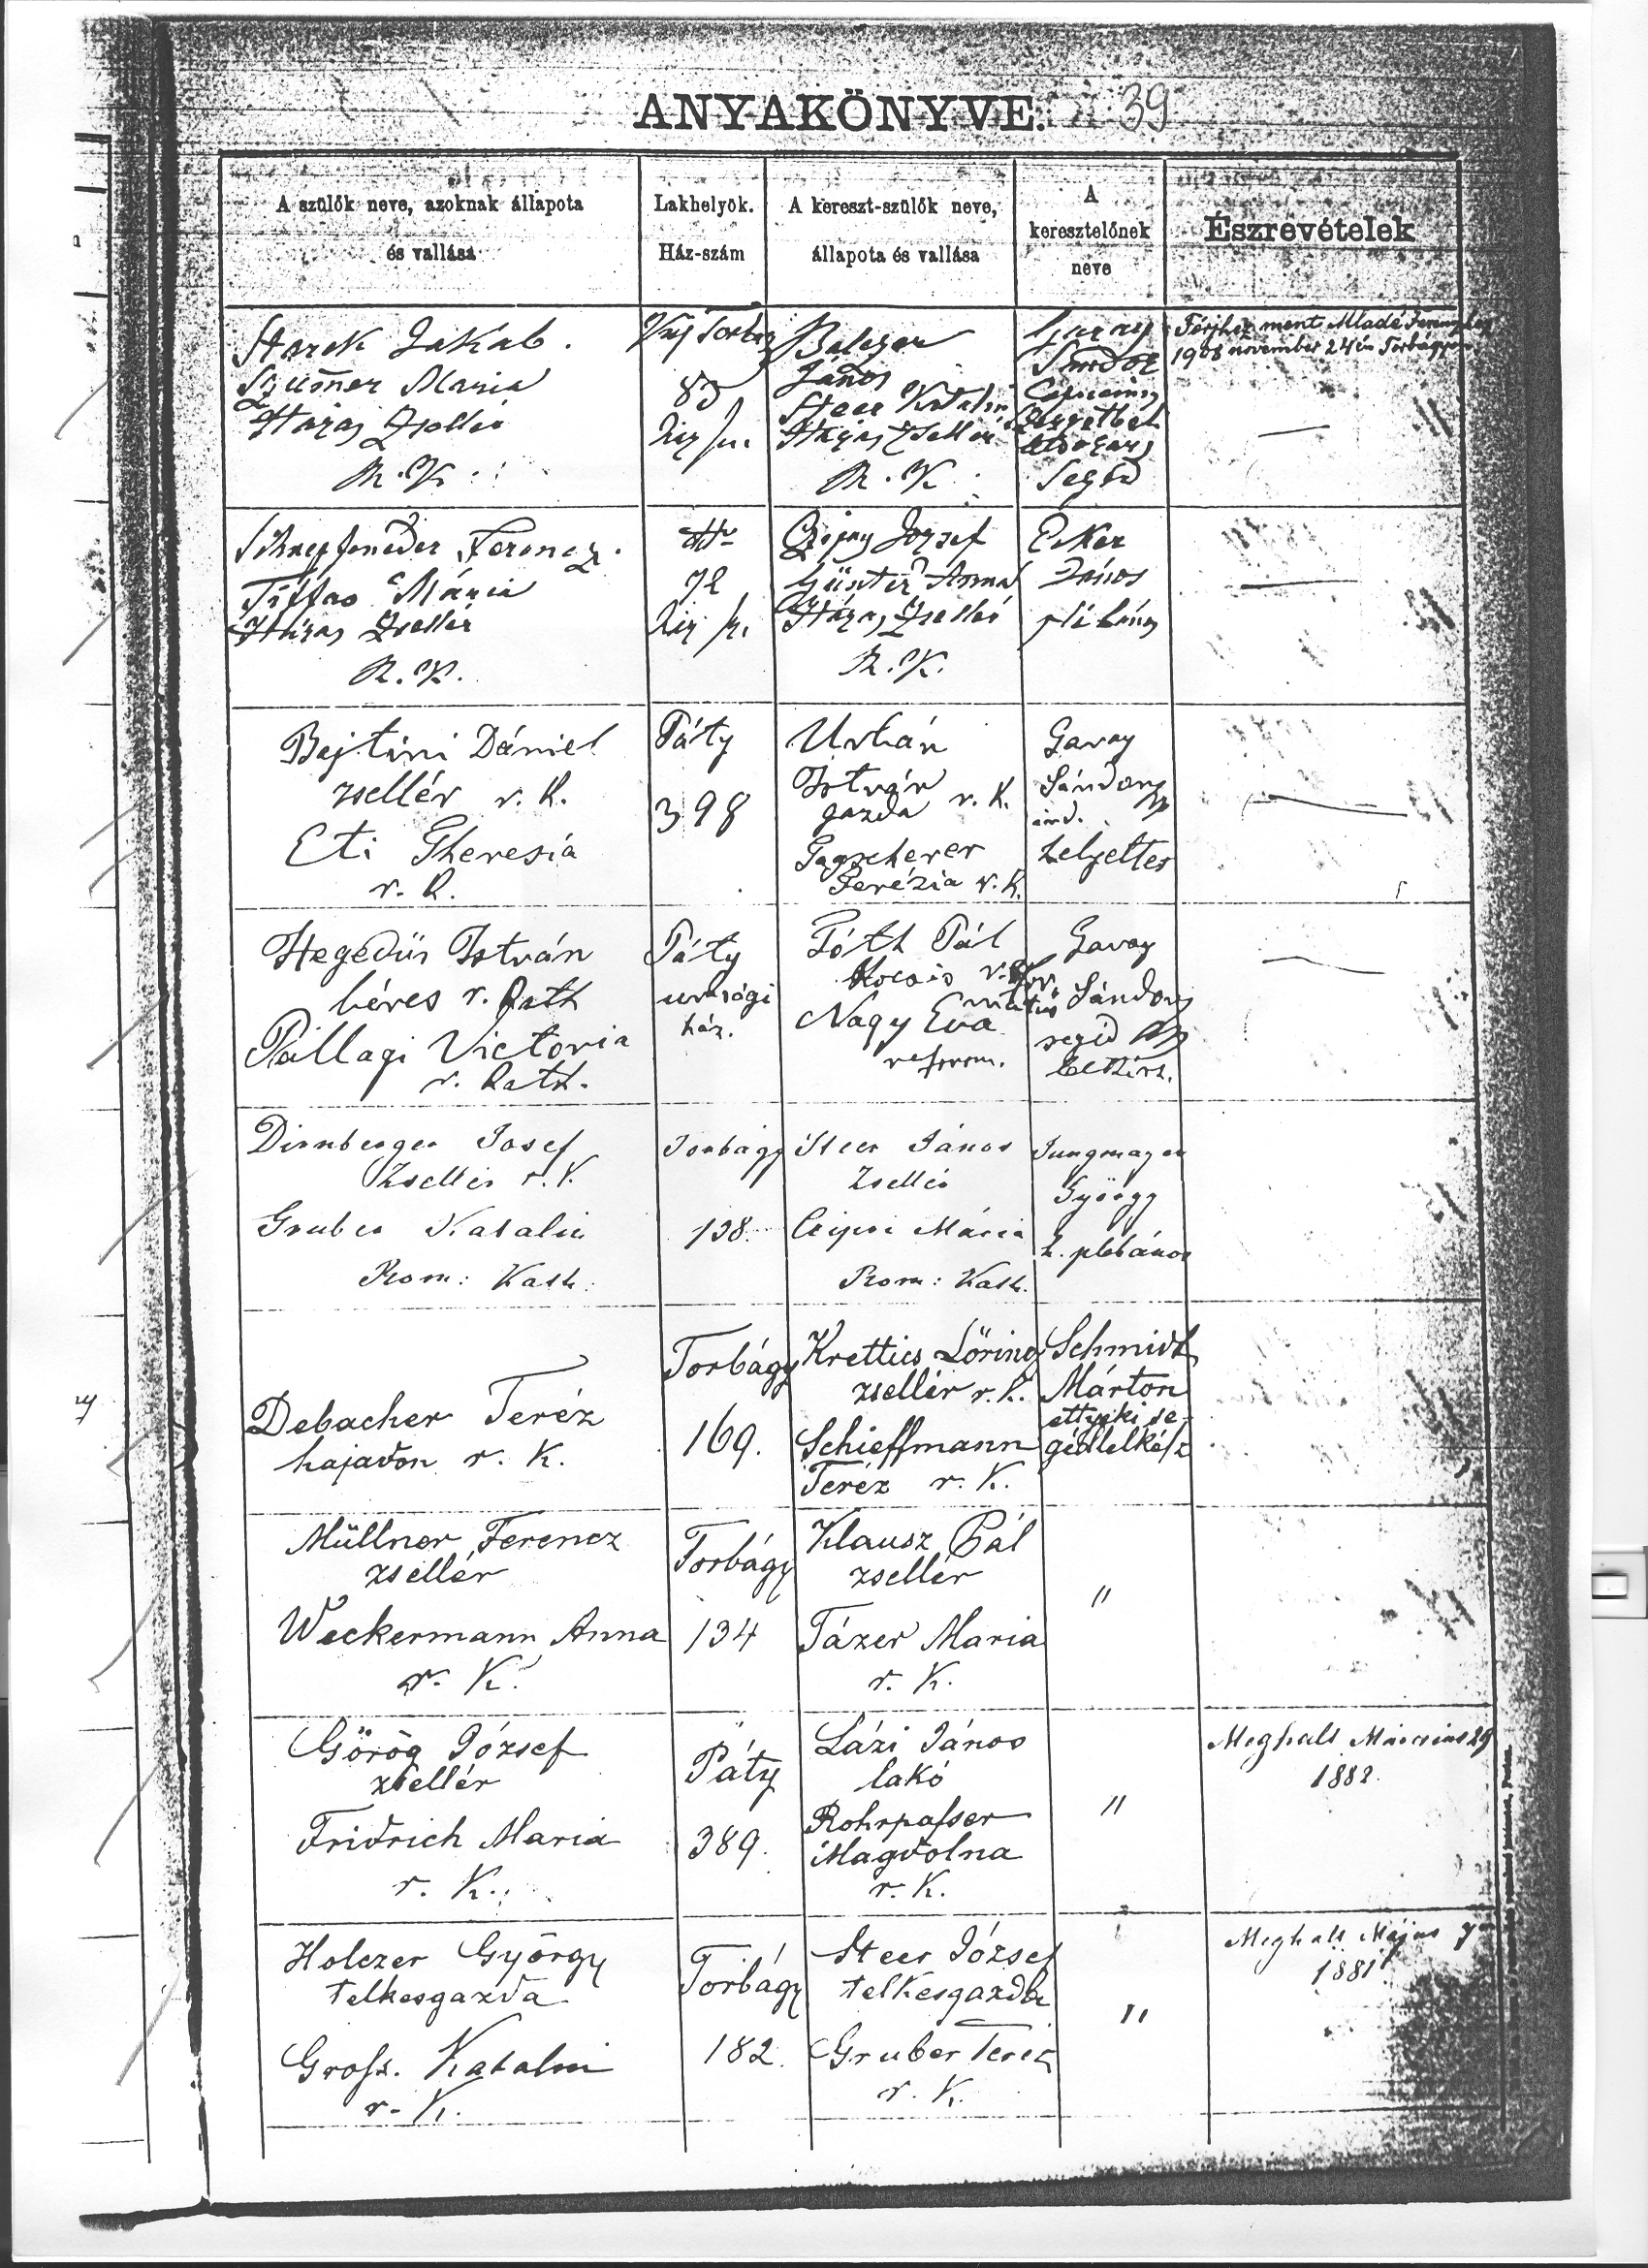 ANYAKÖNYVE. 39
A szülők neve, azoknak állapota
és vallása
Lakhelyök.
Ház-szám
A kereszt-szülők neve,
állapota és vallása
A
keresztelőnek
neve
Észrevételek
Stark Jakab.
Mária
Házas Zsellér
R. K.
83
János
Steer Katalin
Házas Zsellér
R. K.
Garay
Sándor
Segéd
Férjhez ment Mladé Ferenczhez
1908 november 24én Torbágyon
Schnepfeneder Ferencz.
Mária
Házas Zsellér
R. K.
72
József
Günter Anna
Házas Zsellér
R. K.
Eker
János
plébános
Bajtini Dániel
zsellér r. k.
Eti Theresia
r. k.
Páty
398
Urbán
István
gazda r. k.
Terézia r. k.
Garay
Sándor
helyettes
Hegedüs István
béres r. kath
Pállagi Victoria
r. kath.
Páty
urasági
ház.
Tóth Pál
kocsis
Nagy Eva
reform.
Garay
Sándor
segéd
Dirnberger Josef
Zsellér r. K.
Gruber Katalin
Rom: Kath.
Torbágy
138.
Steer János
Zsellér
Mária
Rom: Kath.
Jungmayer
György
h. plébános
Debacher Teréz
hajadon r. K.
Torbágy
169.
Krettics Lőrincz
zsellér r. K.
Schieffmann
Teréz r. K.
Schmidt
Márton
ettyeki se-
gédlelkész
Müllner Ferencz
zsellér
Weckermann Anna
r. K.
Torbágy
134
Klausz Pál
zsellér
Tázer Maria
r. K.
"
Görög József
zsellér
Fridrich Maria
r. K.
Páty
389.
Lázi János
lakó
Rohrpasser
Magdolna
r. K.
"
Meghalt Márczius 29
1882.
Holczer György
telkesgazda
Gross. Katalin
r. K.
Torbágy
182.
Steer József
telkesgazda
Gruber Teréz
r. K.
"
Meghalt Május 7
1881.